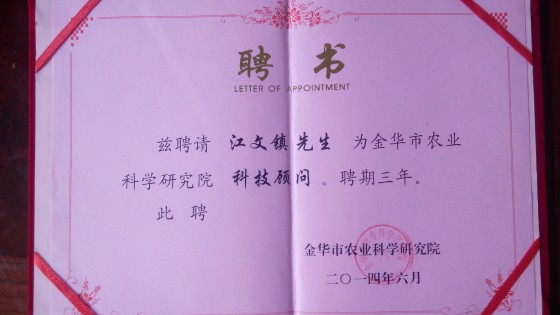 聘书
LETTER OF APPOINTMENT
兹聘请 江文镇先生 为金华市农业
科学研究院 科技顾问 。聘期三年。
此 聘
金华市农业科学研究院
二〇一四年六月